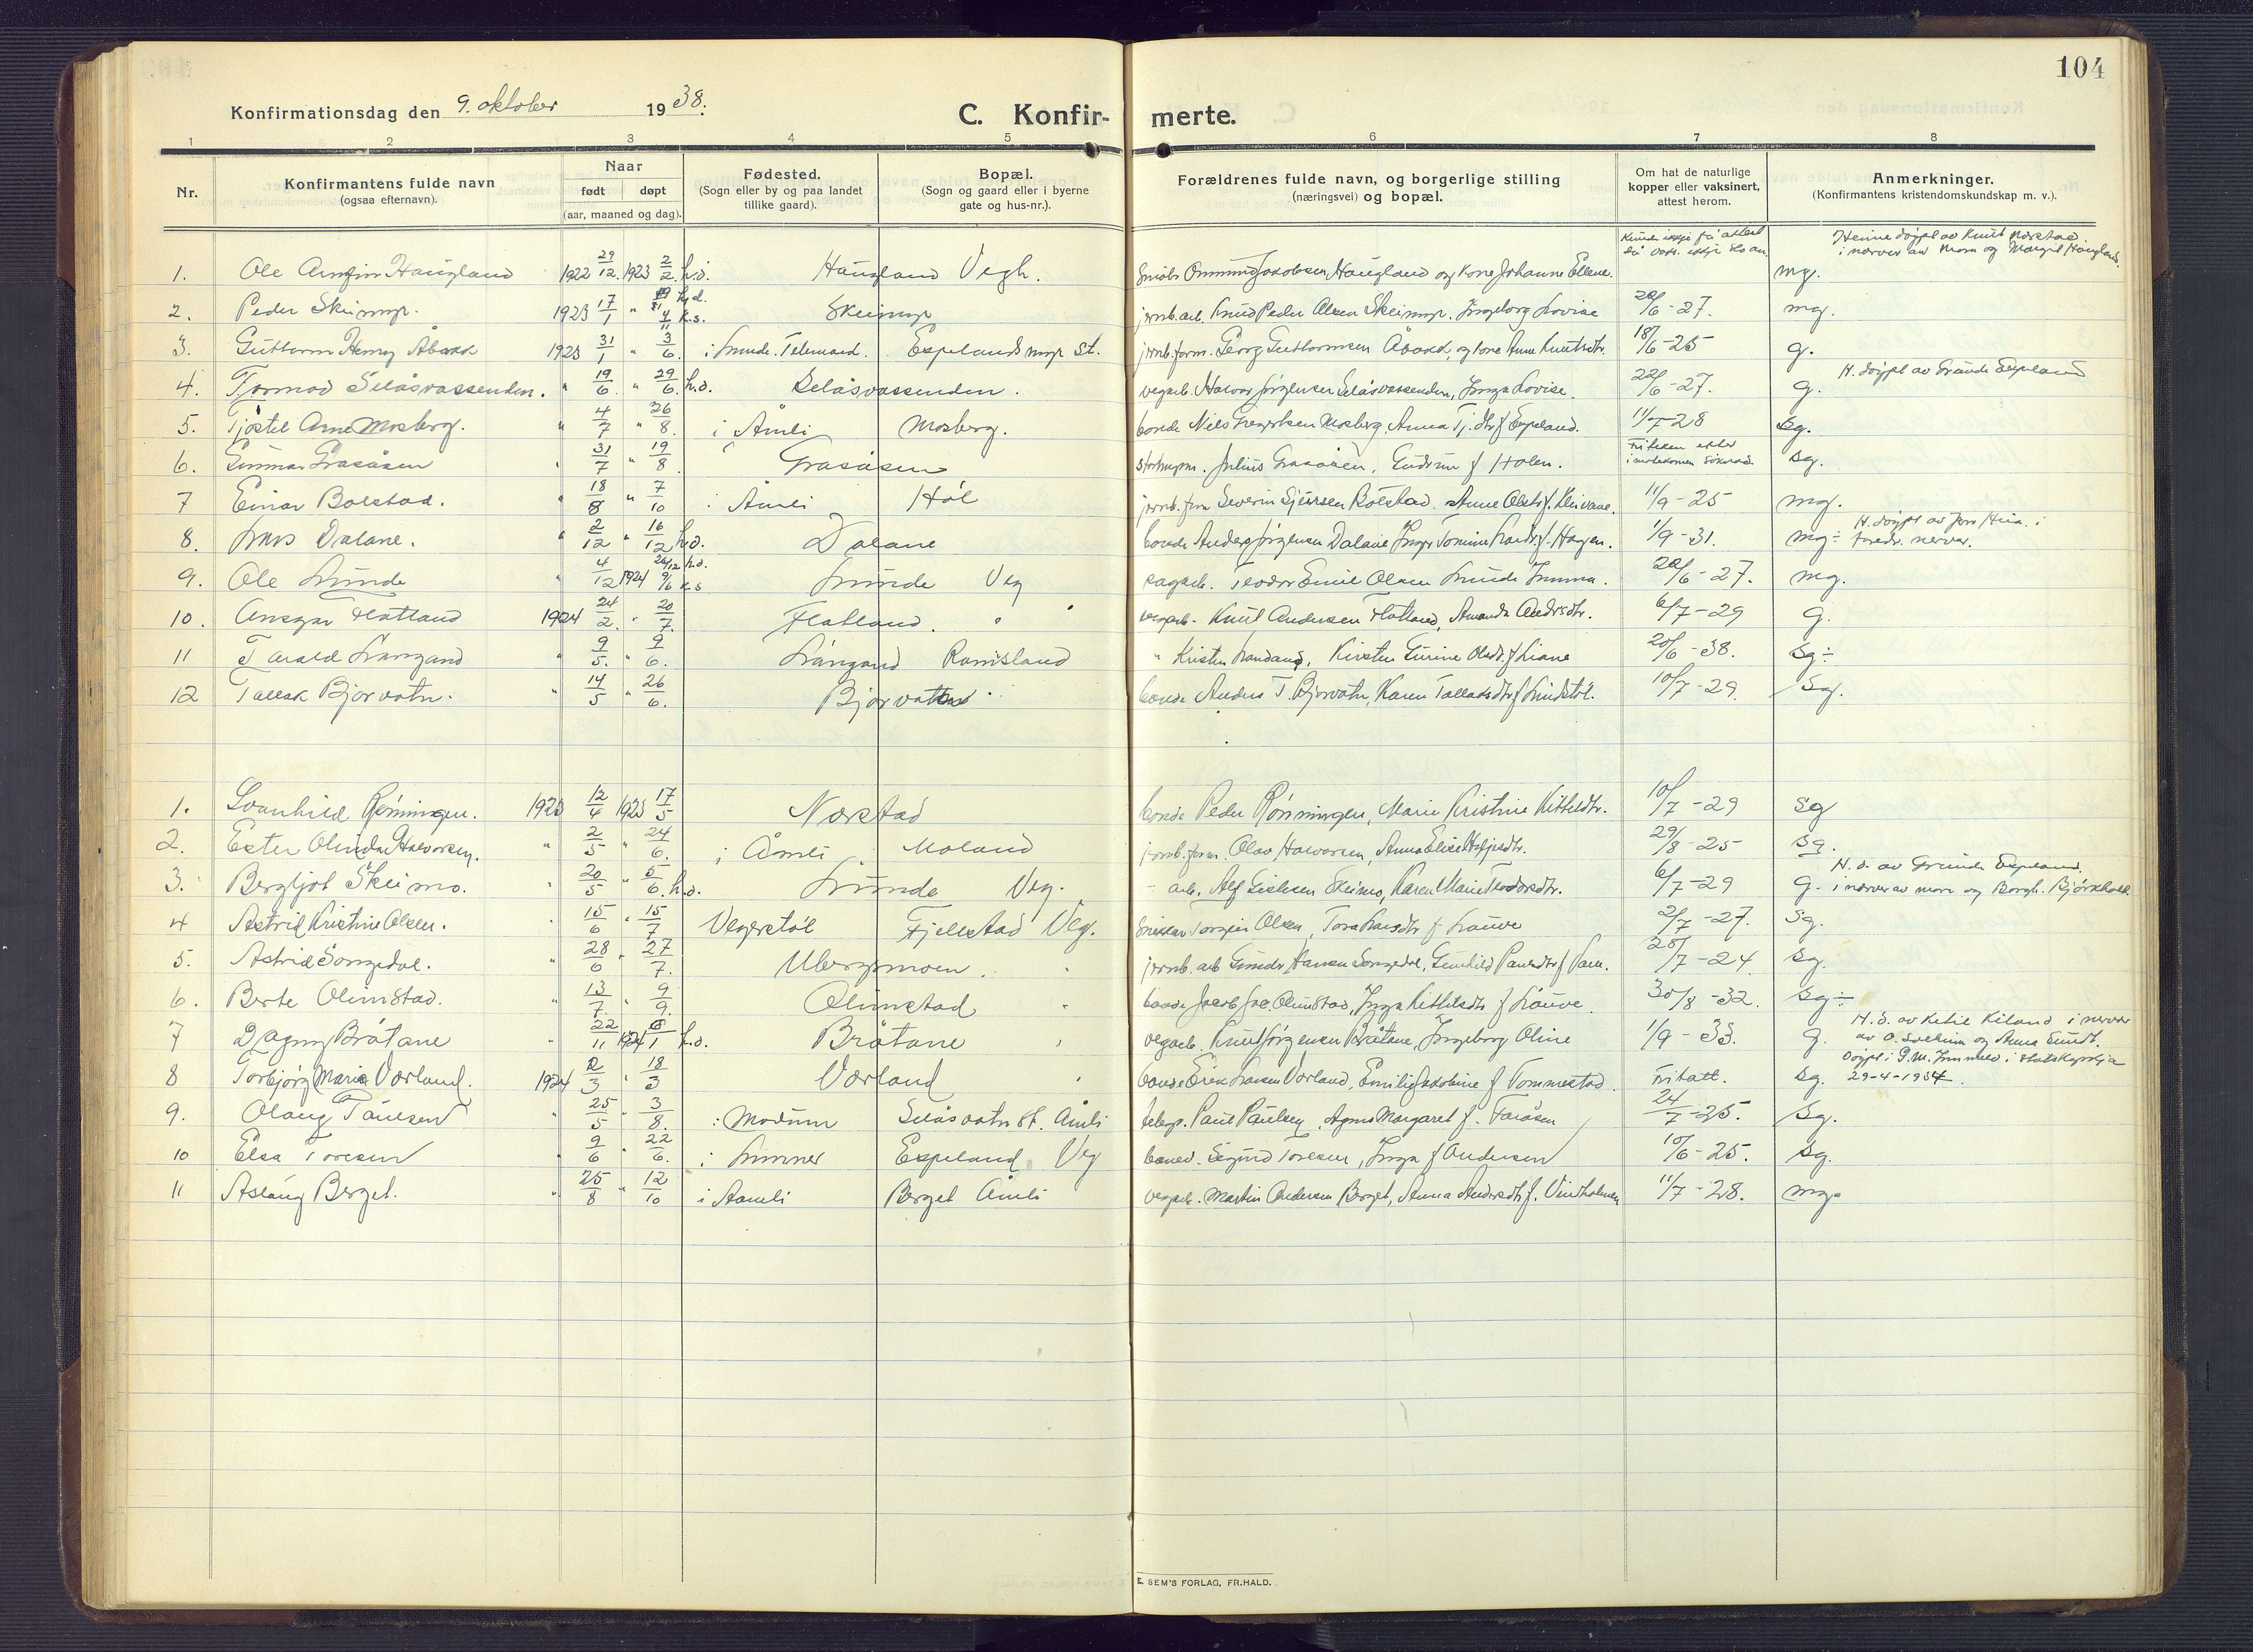 104
Konfirmationsdag den 9. oktober 1938. C. Konfir- merte.
1 2 3 4 5 6 7 8
Nr. Konfirmantens fulde navn (ogsaa efternavn). Naar født døpt (aar, maaned og dag). Fødested. (Sogn eller by og paa landet tillike gaard). Bopæl. (Sogn og gaard eller i byerne gate og hus-nr.). Forældrenes fulde navn, og borgerlige stilling (næringsvei) og bopæl. Om hat de naturlige kopper eller vaksinert, attest herom. Anmerkninger. (Konfirmantens kristendomskundskap m. v.).
1. Ole Arnfinn Haugland 1922 29/12. 1923 2/2. h.d. Haugland Vegh. Haugland og kone Johanne Ellene. mg. Heime døypt av Knut Nærstad i nærver av Mora og Margit Haugland.
2. Peder Skeimyr. 1923 17/1 " h.d. 4/11 k.s. Skeimyr jernb.arb. Knud Peder Olsen Skeimyr. Ingeborg Lovise 20/6-27. mg.
3. Guttorm Henry Åbakk 1923 31/1 " 3/6. i Lunde. Telemark. Espelands myr st. jernb.form. Georg Guttormsen Åbakk, og kone Anne Knutsdtr. 18/6-25 g.
4. Tormod Selåsvassenden. " 19/6. " 29/6. h.d. Selåsvassenden. vegarb. Halvor Jørgensen Selåsvassenden, Inga Lovise. 22/6-27. g. H. døypt av Gunde Espeland
5. Tjøstel Arne Mosberg. " 4/7 " 26/8. i Åmli Mosberg. bonde Nils Gregertsen Mosberg. Anna Tj.dtr f Espeland. 11/7-28 sg.
6. Gunnar Grasåsen " 31/7 " 19/8 Grasåsen Julius Grasåsen, Gudrun f Holen. sg.
7 Einar Bolstad. " 18/8 " 7/10 i Åmli Høl jernb.form Severin Sjursen Bolstad. Anne Olsdtr f. Kleivane. 11/9-25 mg.
8. Lars Dalane. " 2/12 " 16/12 h.d. Dalane bonde Anders Jørgensen Dalane Inger Tomine Larsdtr f. Haugen. 1/9-31. mg÷ H. døypt av Jens Hua. i foredr. nerver.
9. Ole Lunde " 4/12 1924 26/12 h.d. 9/6 k.s Lunde Veg sagarb. Teodor Emil Olsen Lunde Emma. 20/6-27. mg.
10. Ansgar Flatland 1924 24/2. " 20/7. Flatland. " vegarb. Knut Andersen Flatland, Amanda Andersdtr. 6/7-29 g.
11 Tarald Langand " 9/5. " 9/6. Langand Ramsland " Kristen Landand, Kirsten Gurine Olsdtr. f Liane 20/6-38. sg÷
12 Tallak Bjorvatn. " 14/5 " 26/6. Bjorvatn bonde Anders T. Bjorvatn, Karen Tallaksdtr f Lindtøl. 10/7-29. Sg.
1. Svanhild Rønningen. 1923 12/4 1923 17/5 Nærstad bonde Peder Rønningen, Marie Kristine Kittelsdtr. 10/7-29 sg
2. Ester Olinda Halvorsen. " 2/5 " 24/6. i Åmli Moland jernb.form. Olav Halvorsen, Anna Elise 29/8-25 sg.
3. Bergljot Skeimo. " 20/5 " 5/6. h.d. Lunde Veg. " arb. Alf Gislesen Skeimo, Karen Marie Teodorsdtr. 6/7-29 g. H.d. av Grunde Espeland. i nærver av mora og Borgh. Bjørkhølt
4 Astrid Kristine Olsen. " 15/6 " 15/7 Vegerstøl Fjellstad Veg. snikkar Torgeir Olsen, Tora Larsdtr f Lauve 2/7-27. Sg.
5. Astrid Songedal. " 28/6 " 27/7. Ubergsmoen. " jernb.arb Gunder Hansen Songedal, Gunhild Paulsdtr f Paul. 28/7-24 sg.
6. Berte Olimstad. " 13/7. " 9/9. Olimstad " bonde Jakob Jac. Olimstad, Inga Kittelsdtr f Lauve. 30/8-32. sg÷
7 Dagny Bråtane " 22/11 1924 6/1 h.d. Bråtane " vegarb. Knut Jørgensen Bråtane, Ingeborg Oline 1/9-33. g. H.d. av Ketil Kiland i nerver av O. Solheim og Anna Sundt.
8 Torbjørg Marie Vorland. 1924 2/3 " 18/3 Vorland " bonde Eirik Larsen Vorland, Emilie Jakobine f Tommestad. Fritatt. sg. døypt i P.M. Immuel i statskyrkja 29-4-1934.
9. Olaug Paulsen " 25/5 " 3/8. i Modum Selåsvatn st. Åmli telegr. Paul Paulsen, Agnes Margaret f. Faråsen 24/7-25. Sg.
10 Elsa Toresen " 9/6 " 22/6. i Lunner Espeland Veg banev. Sigurd Toresen, Inga f Andersen 10/6-25. sg.
11 Aslaug Berget. " 25/8 " 12/10 i Aamli Berget Åmli vegarb. Martin Andersen Berget, Anna Andersdtr f. Vindholmen 11/7-28. mg.
E. SEM'S FORLAG, FR.HALD.